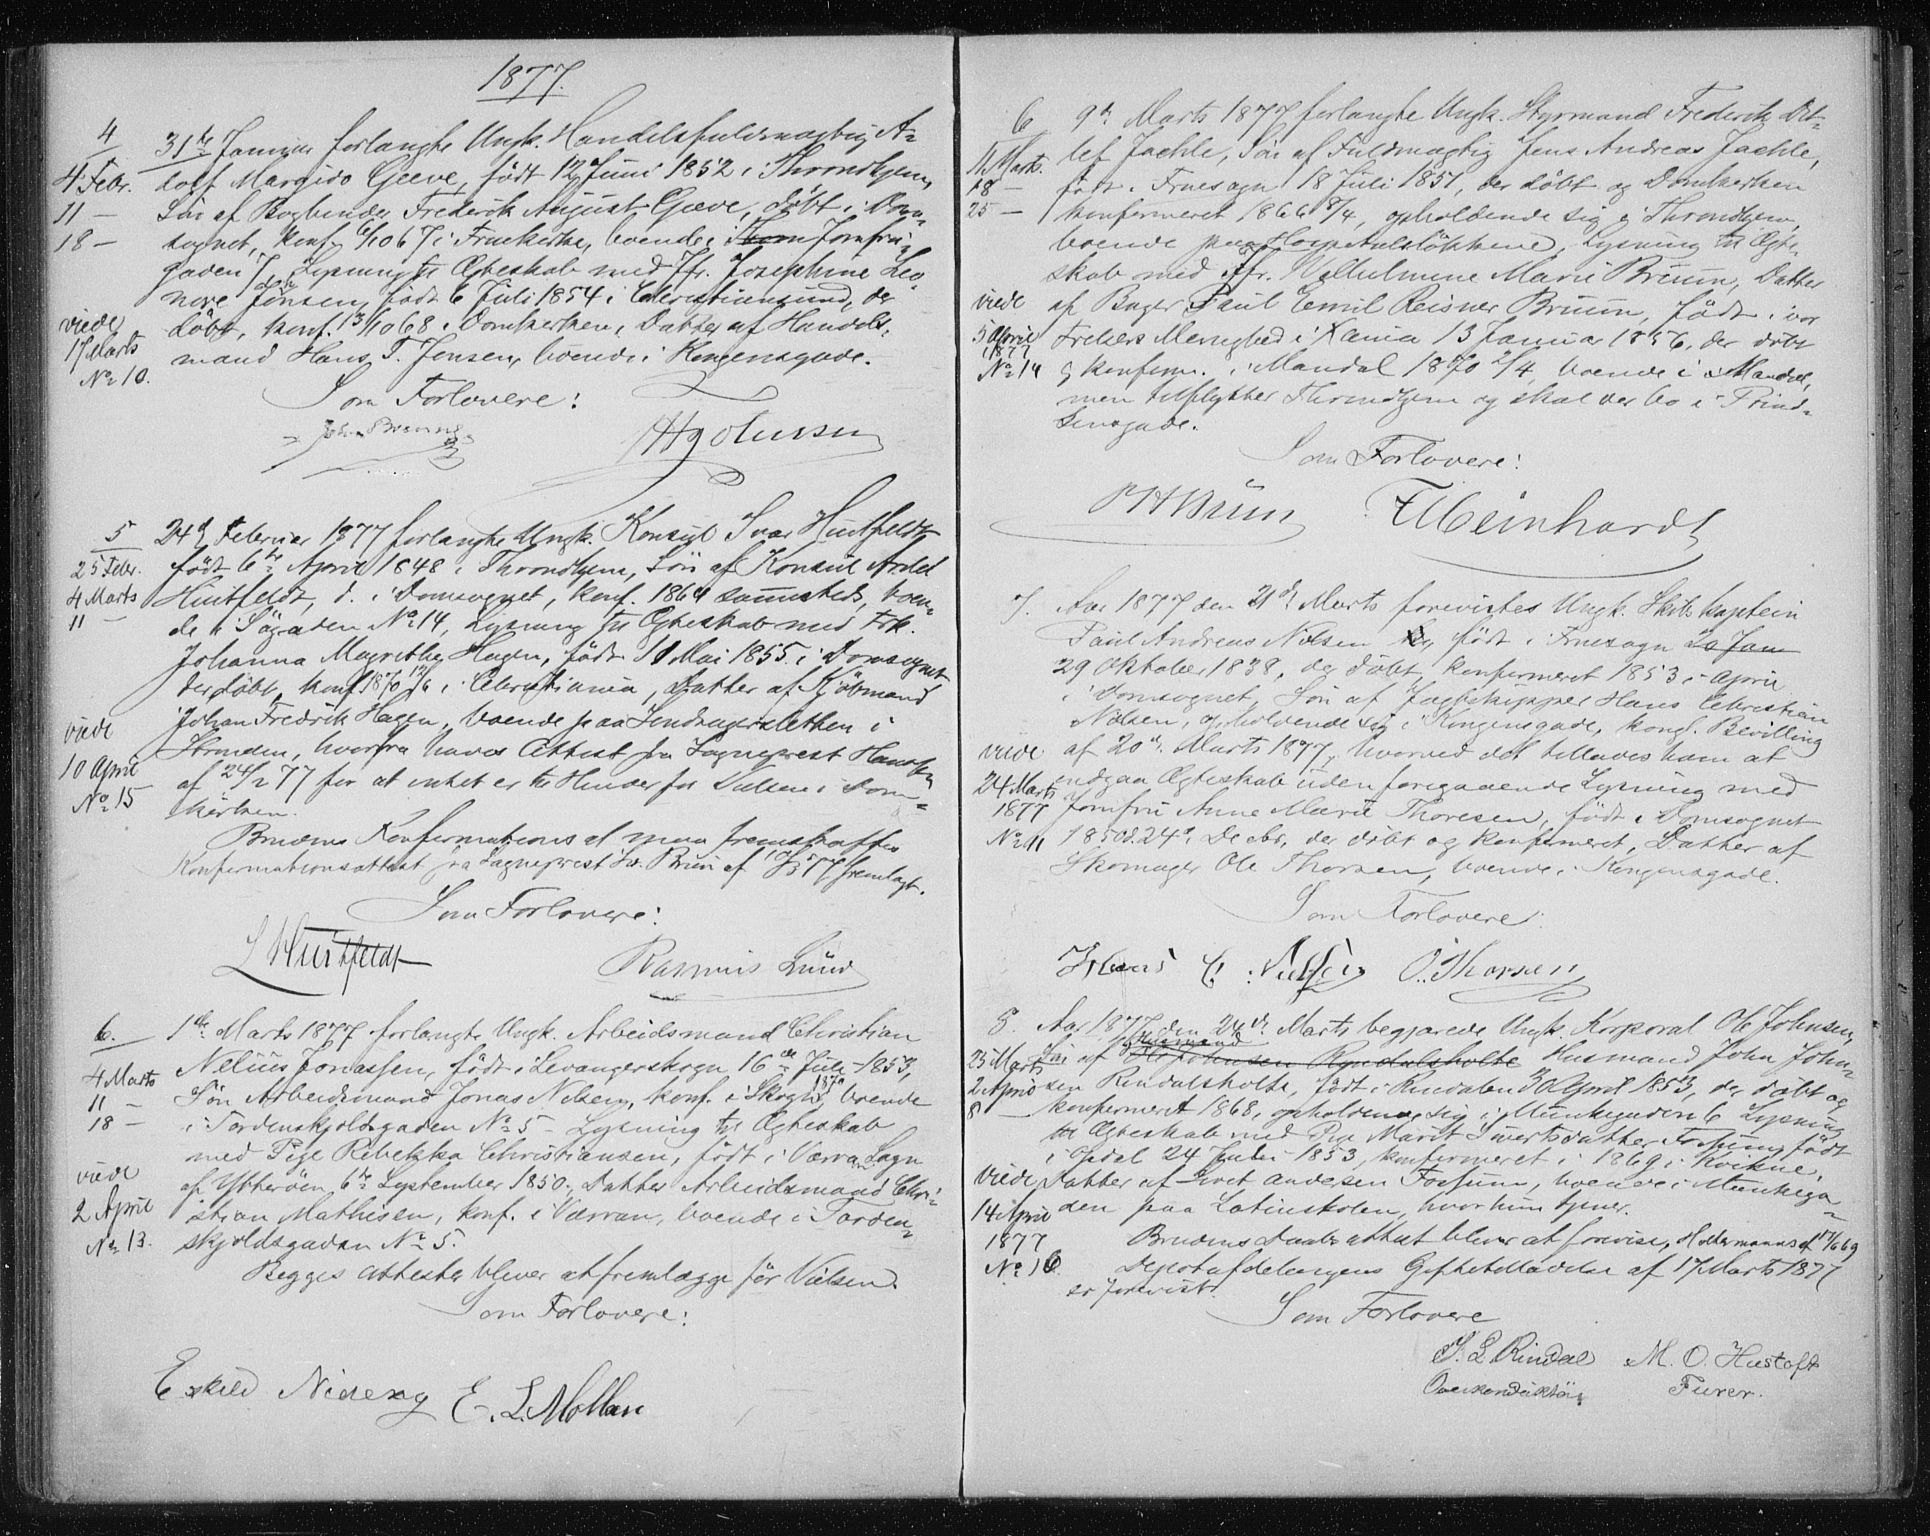 1877.
4
31te Januar forlangte Ungk. Handelsfuldmægtig A-
4 Febr. dolf Margido Geeve, født 12 Juni 1852 i Throndhjem,
11 — Søn af Bogbinder Frederik August Geeve, døbt i Dom-
18 — sognet, konf. 6/10 67 i Fruekirke, boende i Thom Jomfru-
gaden 7, Lysning til Ægteskab med Jfr. Josephine Leo-
nore Jensen, født 6 Juli 1854 i Christiansund, der
viede døbt, konf. 13/10 68 i Domkirken, Datter af Handels-
17 Marts mand Hans T. Jensen, boende i Kongensgade.
No 10.
Som Forlovere:
5 24d Februar 1877 forlangte Ungk. Konsul Ivar Huitfeldt
25 Febr. født 6te April 1848 i Throndhjem, Søn af Konsul Arild
4 Marts Huitfeldt, d. i Domsognet, konf. 1864 sammesteds, boen-
11 — de i Søgaden No 14, Lysning til Ægteskab med Frk.
Johanna Magrethe Hagen, født 11 Mai 1855 i Domsognet,
der døbt, konf. 1870 i Christiania, Datter af Kjøbmand
Johan Fredrik Hagen, boende paa
viede
Strinden, hvorfra haves Attest fra Sogneprest Hansen
10 April af 24/2 77 for at intet er til Hinder for Vielsen i Dom-
No 15 kirken.
Brudens Konfirmationsat maa fremskaffes
Konfirmationsattest fra Sogneprest Bruun af fremlagt.
Som Forlovere:
L Huitfeldt Rasmus Lund
6. 1ste Marts 1877 forlangte Ungk. Arbeidsmand Christian
4 Marts Nelius Jonassen, født i Levangerskogn 16de Juli 1853,
11 — Søn Arbeidsmand Jonas Nelsen, konf. i Skogn 1870, boende
18 — i Tordenskjoldsgaden No 5 — Lysning til Ægteskab
med Pige Rebekka Christiansen, født i Værran Sogn
viede af Ytterøen 6te September 1850, Datter Arbeidsmand Chri-
2 April stian Mathisen, konf. i Værran, boende i Torden-
No 13. skjoldsgaden No 5.
Begges attester bliver at fremlægge før Vielsen.
Som Forlovere:
Eskild E. L. Mollan
6 9de Marts 1877 forlangte Ungk. Styrmand Frederik Det-
11 Marts lef Jachle, Søn af Fuldmægtig Jens Andreas Jachle,
18 — født i Fruesogn 18 Juli 1851, der døbt og Domkirken
25 — konfirmeret 1866 8/4, opholdende sig i Throndhjem,
boende paa Hospitalsløkkene, Lysning til Ægte-
skab med Jfr. Wilhelmine Marie Bruun, Datter
viede af Bager Paul Emil Reisner Bruun, født i vor
5 April Frelsers Menighed i Xania 13 Januar 1856, der døbt
1877
No 14 og konfirm. i Mandal 1870 2/4, boende i Mandal,
men tilflytter Throndhjem og skal der bo i Prind-
sensgade.
Som Forlovere:
Meinhardt
7. Aar 1877 den 21de Marts forevistes Ungk. Skibskaptein
Paul Andreas Nilsen født i Fruesogn
29 Oktober 1838, der døbt, konfirmeret 1853 i April
i Domsognet, Søn af Jagtskipper Hans Christian
Nilsen, opholdende sig i Kongensgade, kongl. Bevilling
viede af 20de Marts 1877, hvorved det tillades ham at
24 Marts indgaa Ægteskab uden foregaaende Lysning med
1877 Jomfru Anne Marie Thoresen, født i Domsognet
No 11 1850 d. 24de Decbr, der døbt og konfirmeret, Datter af
Skomager Ole Thorsen, boende i Kongensgade.
Som Forlovere:
Hans C. Nielsen O. Thorsen
8. Aar 1877 den 24de Marts begjærede Ungk. Korporal Ole Johnsen,
25 Marts Søn af Husmand John John-
2 April sen Rindalsholte, født i Rindalen 30 April 1853, der døbt og
8 — konfirmeret 1868, opholdende sig i Munkegaden 6 Lysning
til Ægteskab med Pige Marit Sivertsdatter Fossum, født
i Opdal 24 Juli 1853, konfirmeret i 1869 i Kvikne,
viede Datter af Sivert Andersen Fossum, boende i Munkega-
14 April den paa Latinskolen, hvor hun tjener.
1877 Brudens Daabsattest bliver at forevise, Holtermanns af
No 16 Depotafdelingens Giftetilladelse af 17 Marts 1877
er forevist.
Som Forlovere
J. L Rindal M. O. Hustoft
Overkonduktør Furer.